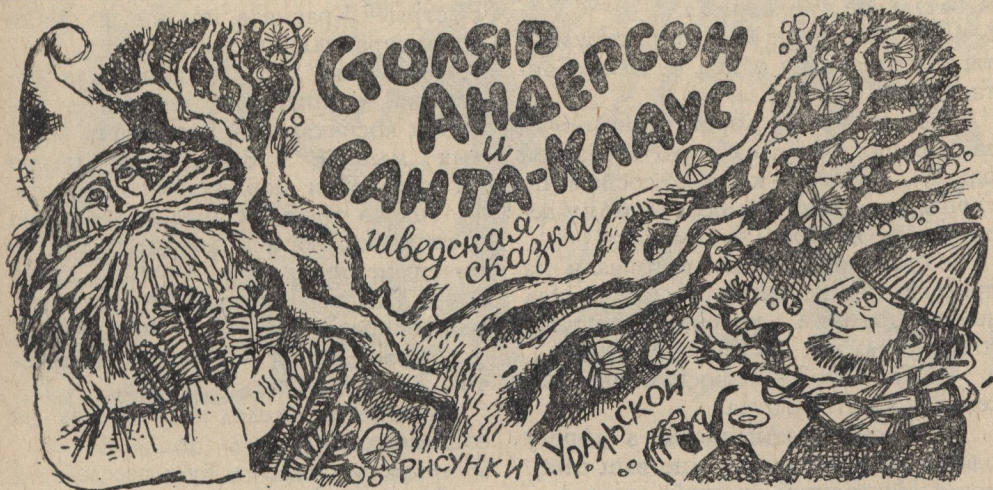 СТОЛЯР
АНДЕРСОН
и
САНТА-КЛАУС
шведская
сказка
РИСУНКИ Л. УРАЛЬСКОЙ